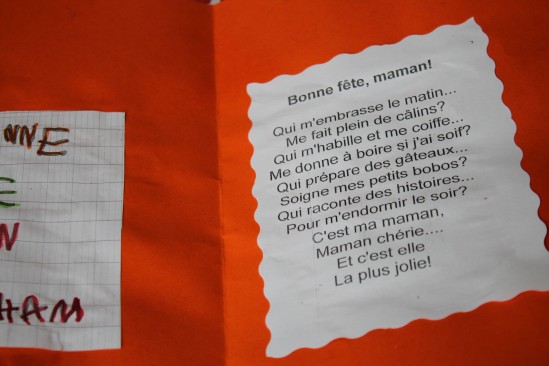 NNE
E
N
HAM
Bonne fête, maman!
Qui m'embrasse le matin...
Me fait plein de câlins?
Qui m'habille et me coiffe...
Me donne à boire si j'ai soif?
Qui prépare des gâteaux...
Soigne mes petits bobos?
Qui raconte des histoires...
Pour m'endormir le soir?
C'est ma maman,
Maman chérie....
Et c'est elle
La plus jolie!